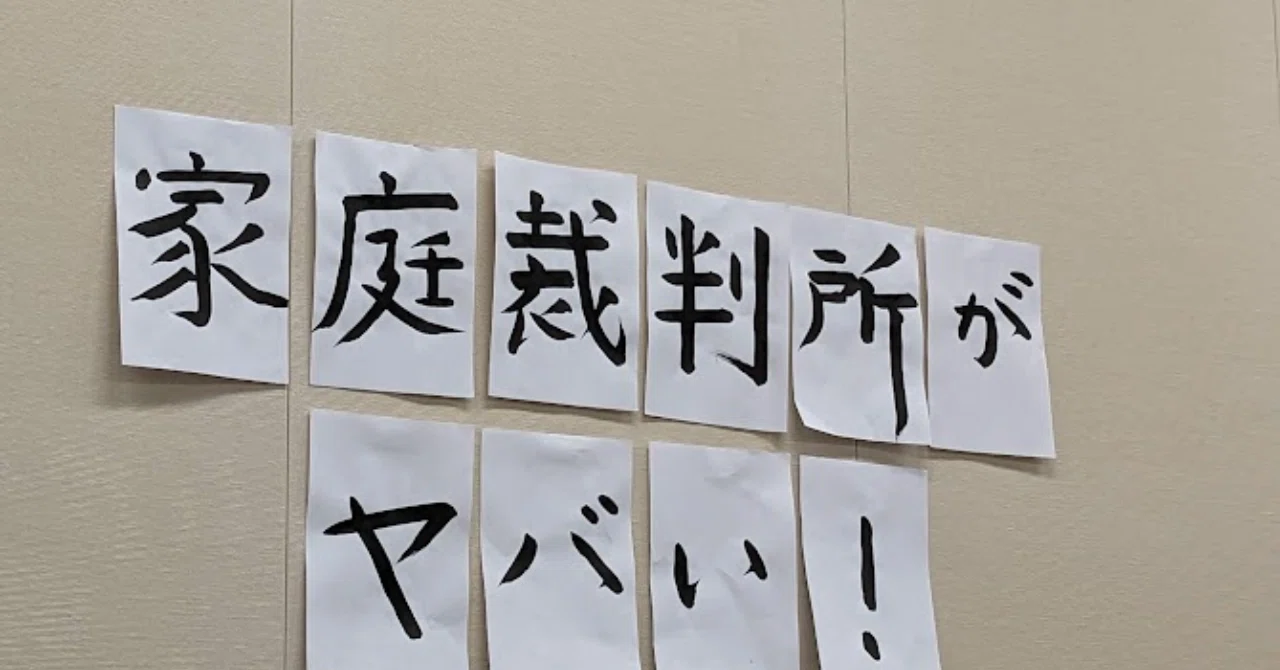 家庭裁判所が
ヤバい!